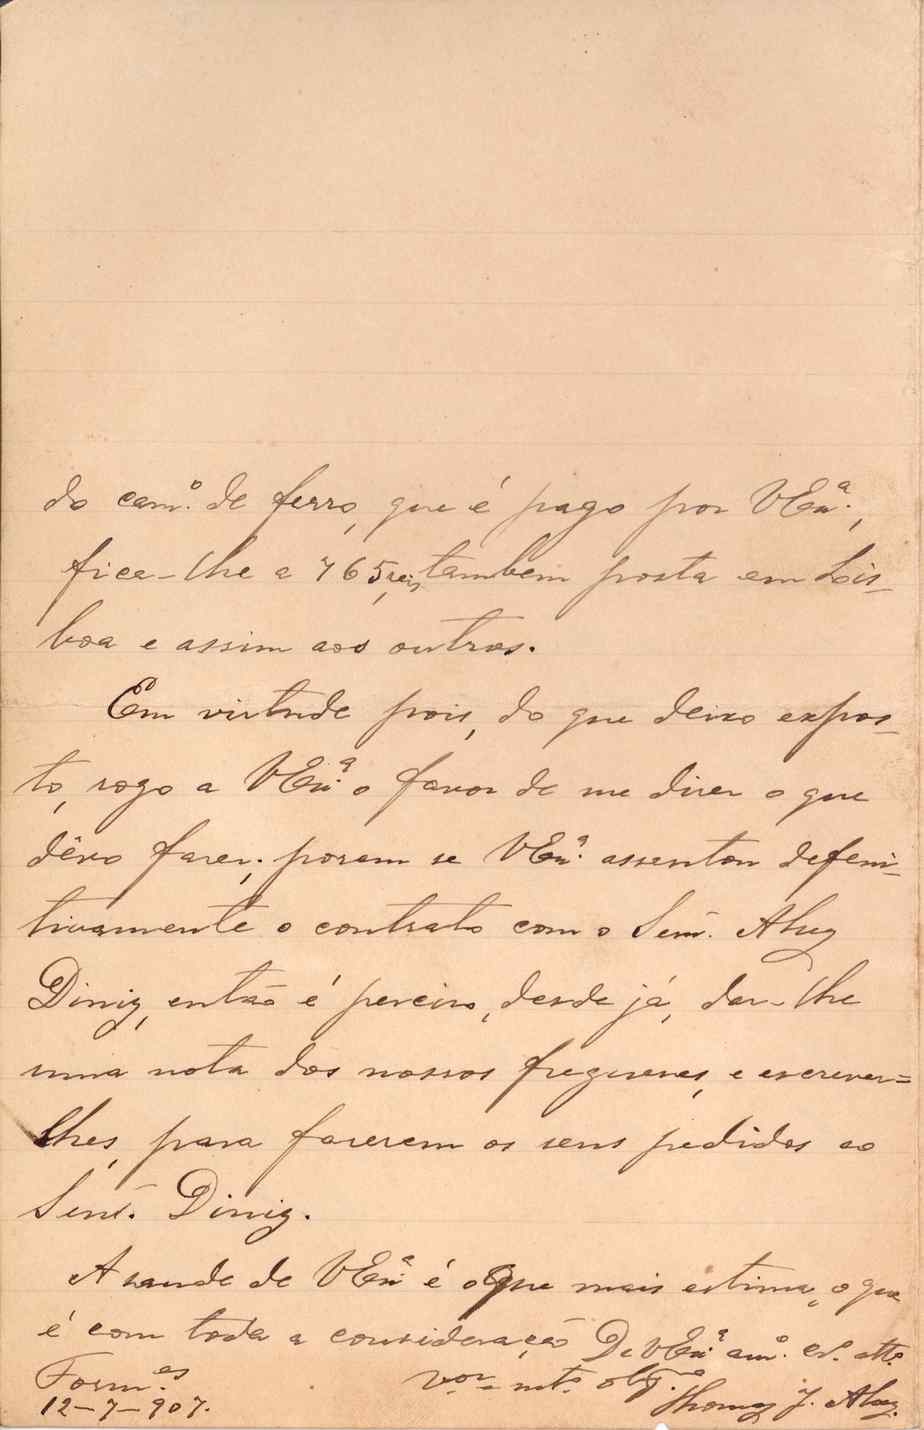 do cam.º de ferro, que é pago por VExª.,
fica-lhe a 765 reis, tambem posta em Lis-
boa e assim aos outros.
Em virtude pois, do que deixo expos-
to, rogo a VExª o favor de me dizer o que
dêvo fazer; porem se VExª. assentou defeni-
tivamente o contrato com o Senr. Alvez
Diniz, então é perciso, desde já, dar-lhe
uma nota dos nossos freguezes, e escrever=
lhes, para fazerem os seus pedidos ao
Senr. Diniz.
A saude de VExª é o que mais estima, o que
é com toda a consideração De VExª am.º cr.º att.º
Form.es vor. mt.º obg.mo
12-7-907. Thomaz J. Alvez.